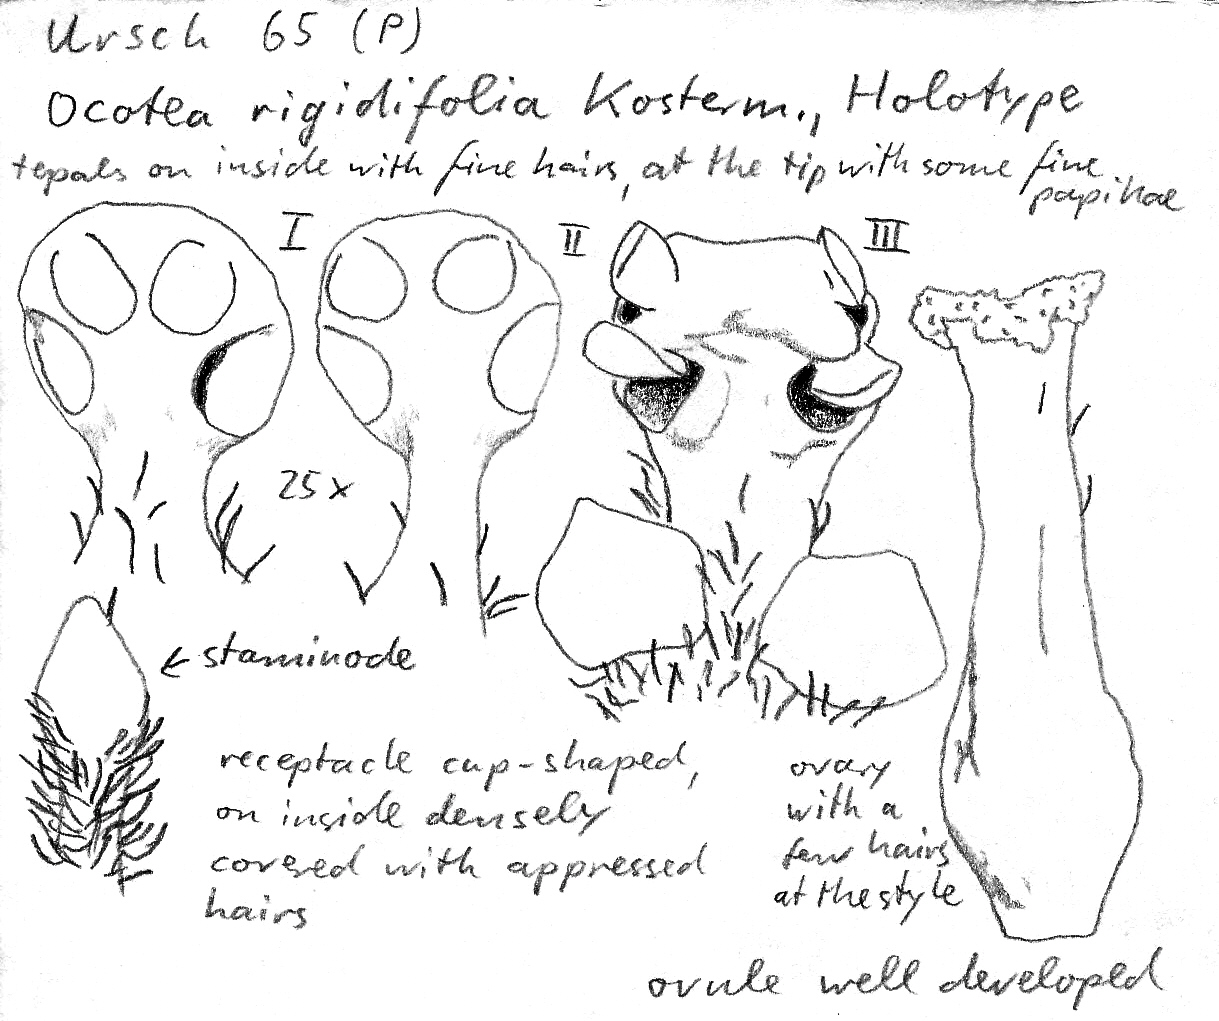 Ursch 65 (P)
Ocotea rigidifolia Kosterm., Holotype
tepals on inside with fine hairs, at the tip with some fine
papillae
I
II
III
25 x
← staminode
receptacle cup-shaped,
on inside densely
covered with appressed
hairs
ovary
with a
few hairs
at the style
ovule well developed